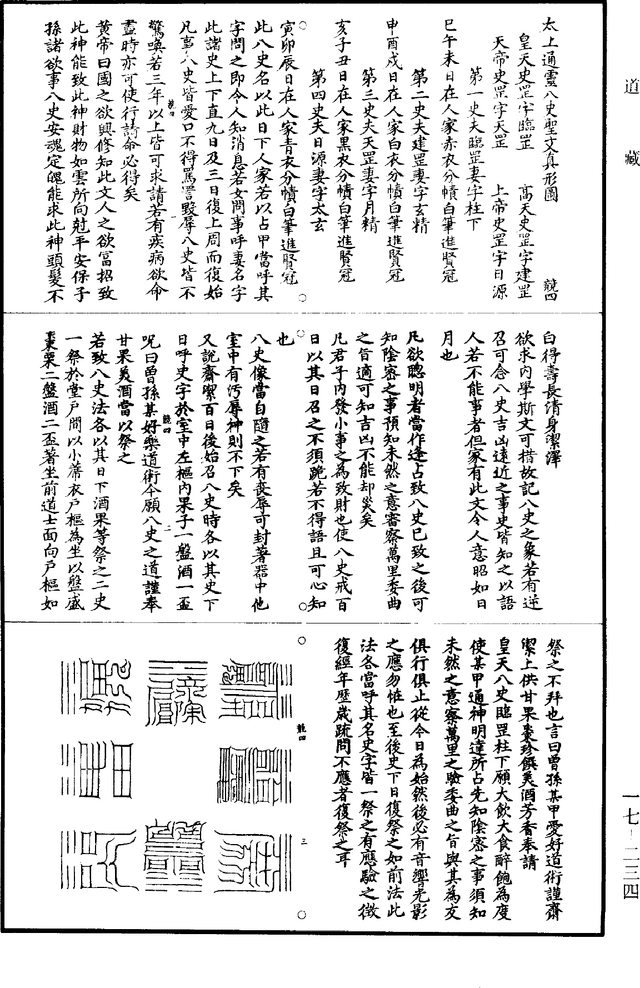 道藏
一七—二三四
太上通靈八史聖文真形圖　競四
皇天史罡字臨罡　高天史罡字建罡
天帝史罡字天罡　上帝史罡字日源
第一史夫臨罡妻字柱下
巳午未日在人家赤衣分幘白筆進賢冠
第二史夫建罡妻字玄精
申酉戌日在人家白衣分幘白筆進賢冠
第三史夫天罡妻字月精
亥子丑日在人家黑衣分幘白筆進賢冠
第四史夫日源妻字太玄
寅卯辰日在人家青衣分幘白筆進賢冠
此八史名以此日下人家若以占甲當呼其
字問之即令人知消息若女問事呼妻名字
此諸史上下直九日及三日復上周而復始
凡事八史皆愛口不得罵詈毀辱八史皆不
驚喚若三年以上皆可求請若有疾病欲命
盡時亦可使行請命必得矣
黃帝曰國之欲興修知此文人之欲富招致
此神能致此神財物如雲所向剋平安保子
孫諸欲事八史安魂定魄能求此神頭髮不
白得壽長清身潔澤
欲求內學斯文可措故記八史之象若有逆
召可念八史吉凶遠近之事史皆知之以語
人若不能事者但家有此文令人意昭如日
月也
凡欲聰明者當作逢占致八史已致之後可
知陰密之事預知未然之意審察萬里委曲
之旨適可知吉凶不能却災矣
凡君子內發小事之為致財也使八史戒百
日以其日召之不須跪若不得語且可心知
也
八史像當自隨之若有喪辱可封著器中他
室中有污辱神則不下矣
又說齋潔百日後始召八史時各以其史下
日呼史字於室中左樞內果子一盤酒一盃
呪曰曾孫某好樂道術今願八史之道謹奉
甘果美酒當以祭之
若致八史法各以其日下酒果等祭之二史
一祭於堂戶間以小蓆衣戶樞為坐以盤盛
棗栗二盤酒二盃著坐前道士面向戶樞如
祭之不拜也言曰曾孫某甲愛好道術謹齋
潔上供甘果棗珍饌美酒芳香奉請
皇天八史臨罡柱下願大飲大食醉飽為度
使某甲通神明達所占先知陰密之事須知
未然之意察萬里之驗委曲之旨與其為交
俱行俱止從今日為始然後必有音響光影
之應勿怪也至後史下日復祭之如前法此
法各當呼其名史字皆一祭之有應驗之徵
復經年歷歲疏問不應者復祭之耳
競四　三